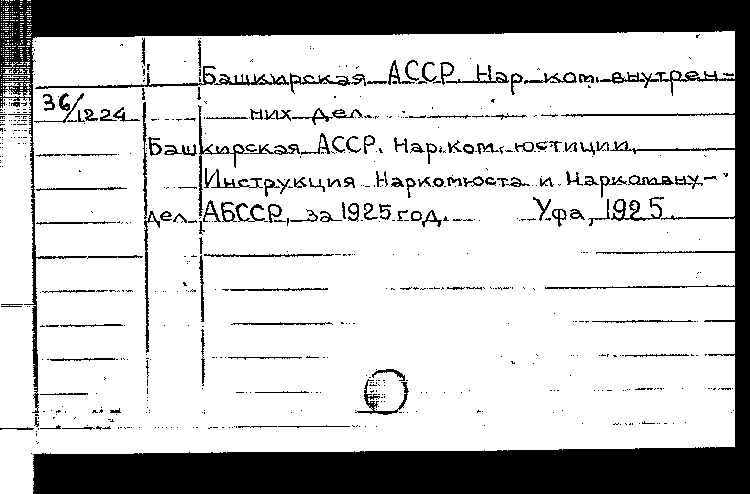 Башкирская АССР. Нар. ком. внутрен-
36/1224 них дел.
Башкирская АССР. Нар.ком. юстиции.
Инструкция Наркомюста и Наркомвну-
дел АБССР, за 1925 год. Уфа, 1925.